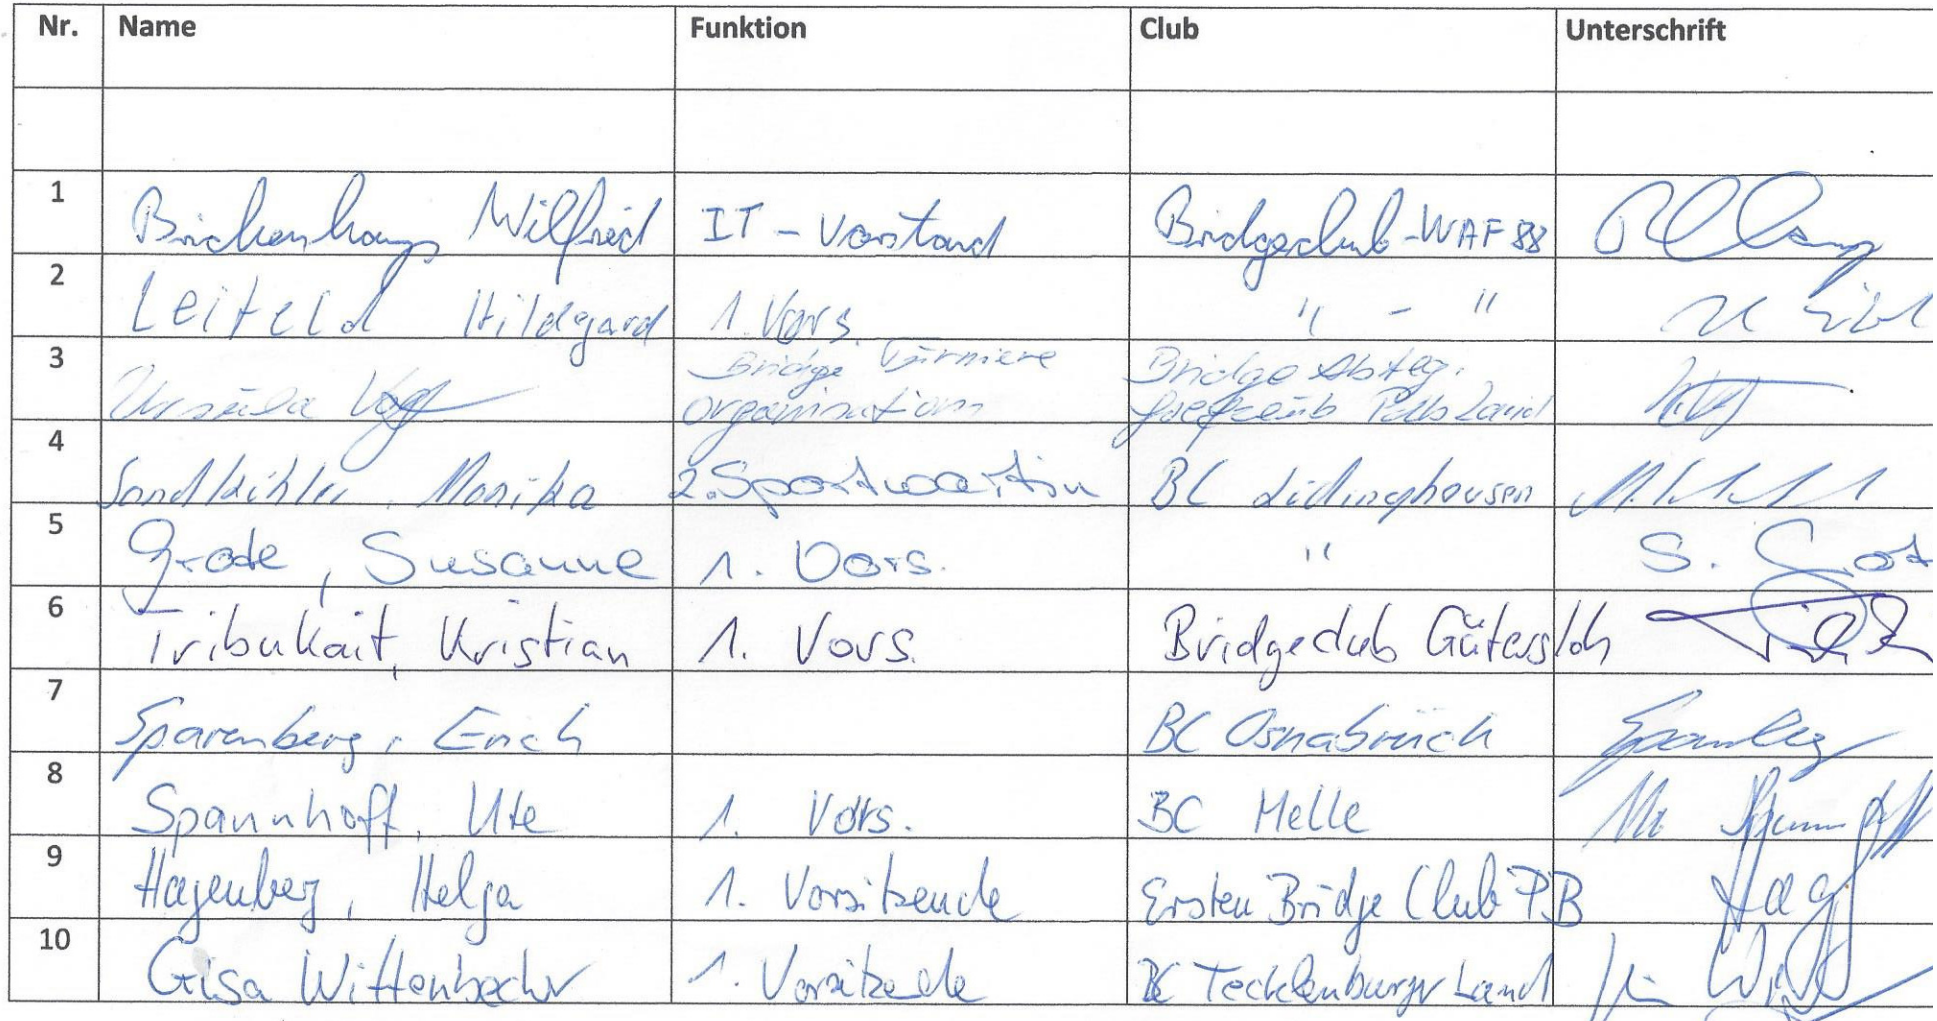 Nr. Name Funktion Club Unterschrift
1 Brickenkamp Wilfried IT - Vorstand Bridgeclub - WAF 88
2 Leifeld Hildegard 1. Vors. " - "
3 Ursula Vogt Bridge Turniere Organisation Bridge Abteg. Golfclub Land
4 Sandkühler, Monika 2. Sportwartin BC Lüdinghausen
5 Grote, Susanne 1. Vors. " S. Grot
6 Tribukait, Kristian 1. Vors. Bridgeclub Gütersloh
7 Sparenberg, Erich BC Osnabrück Sparenberg
8 Spannhoff, Ute 1. Vors. BC Melle
9 Hagenberg, Helga 1. Vorsitzende Ersten Bridge Club PB Hag
10 Gisa Wittenbecher 1. Vorsitzende BC Tecklenburger Land